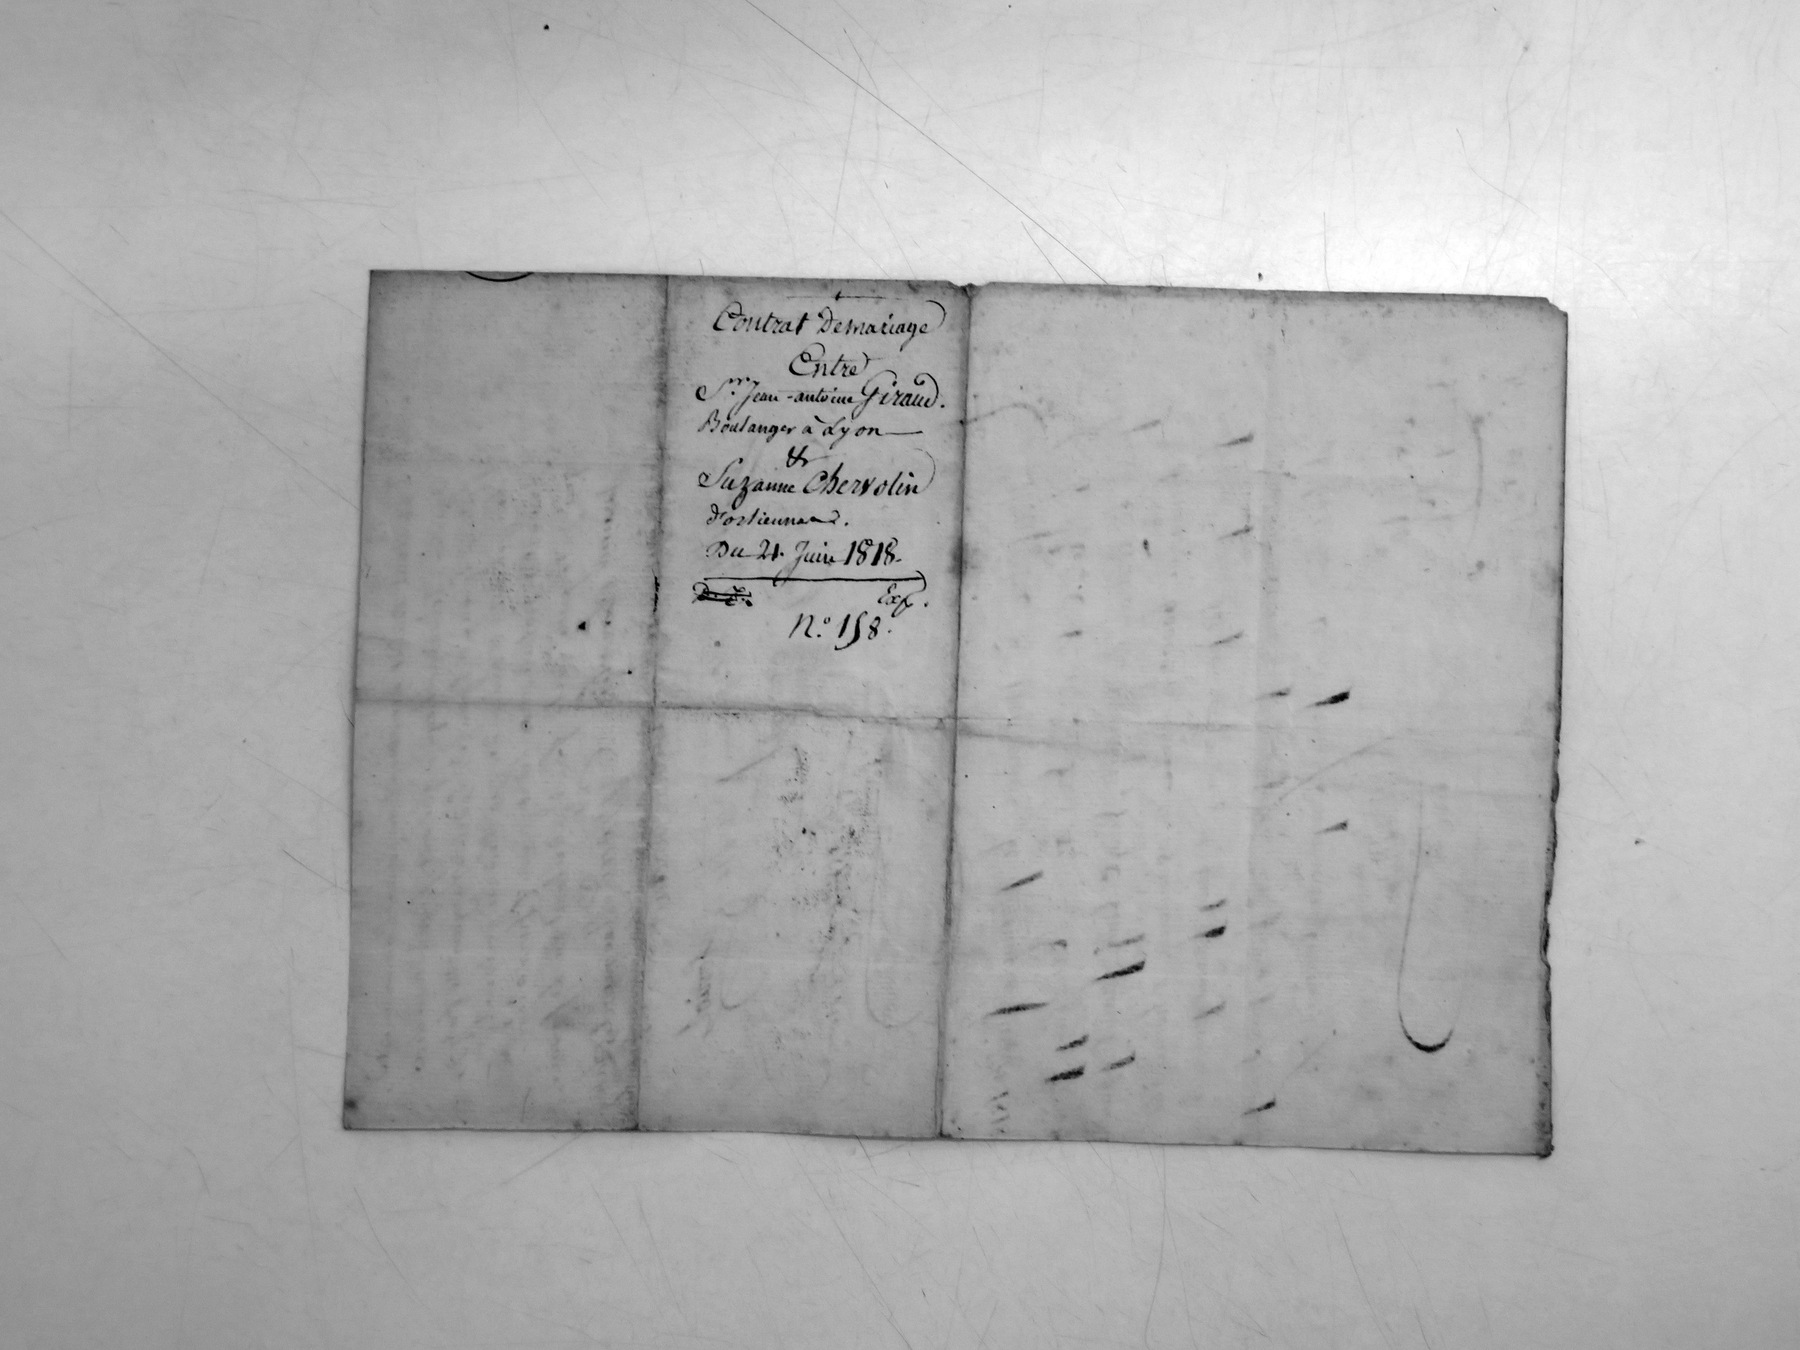 Contrat De mariage
Entre
Sr. Jean-antoine Giraud.
Boulanger à Lyon
&
Suzanne Chervolin
Du 21. Juin 1818.
Exp.
N.º 158.